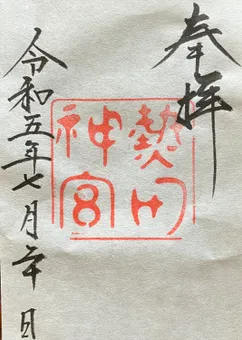 奉拝
熱田神宮
令和五年七月 日